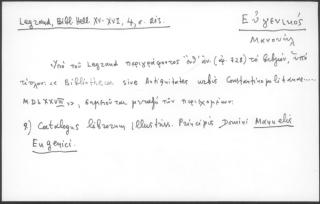 Legrand, Bibl. Hell. XV-XVI, 4, σ. 215.
Εὐγενικός
Μανουήλ
Ὑπὸ τοῦ Legrand περιγράφοντος ὑπ' ἀρ. (ἀρ. 728) τὸ βιβλίον, ὑπὸ
τίτλον: « Bibliotheca sive Antiquitates urbis Constantinopolitanae....
MDLXXVIII », σημειοῦται μεταξὺ τῶν περιεχομένων:
8) Catalogus librorum illustriss. Principis Domini Manuelis
Eugenici.